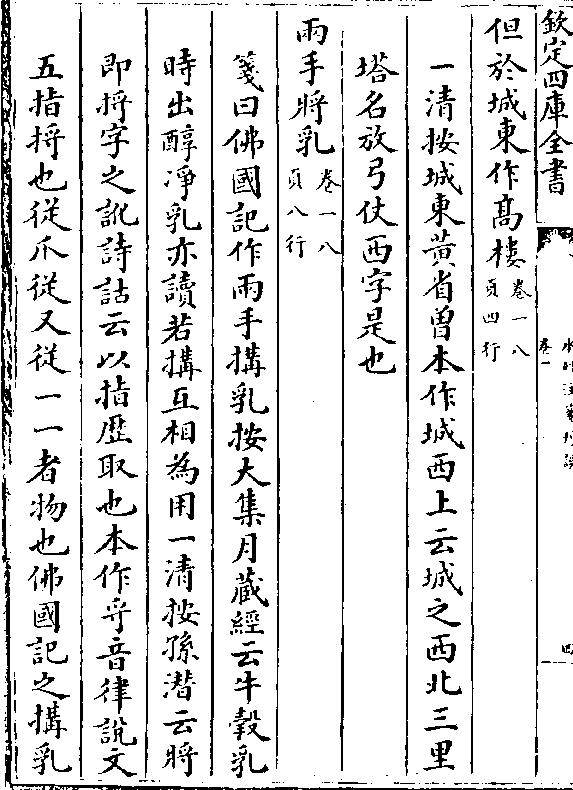 欽定四庫全書
水經注箋刊誤
卷一
四
但於城東作髙樓卷一八頁四行
一清按城東黃省曽本作城西上云城之西北三里
塔名放弓仗西字是也
兩手將乳卷一八頁八行
箋曰佛國記作兩手搆乳按大集月藏經云牛㲉乳
時出醇净乳亦讀若搆互相為用一清按孫潛云將
即捋字之訛詩詁云以指歴取也本作寽音律說文
五指捋也從爪從又從一一者物也佛國記之搆乳